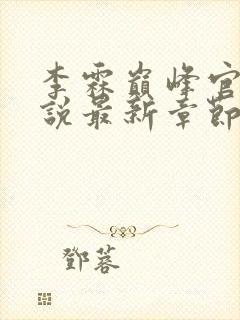 李霖巔峰官
說最新章節
鄧蓉